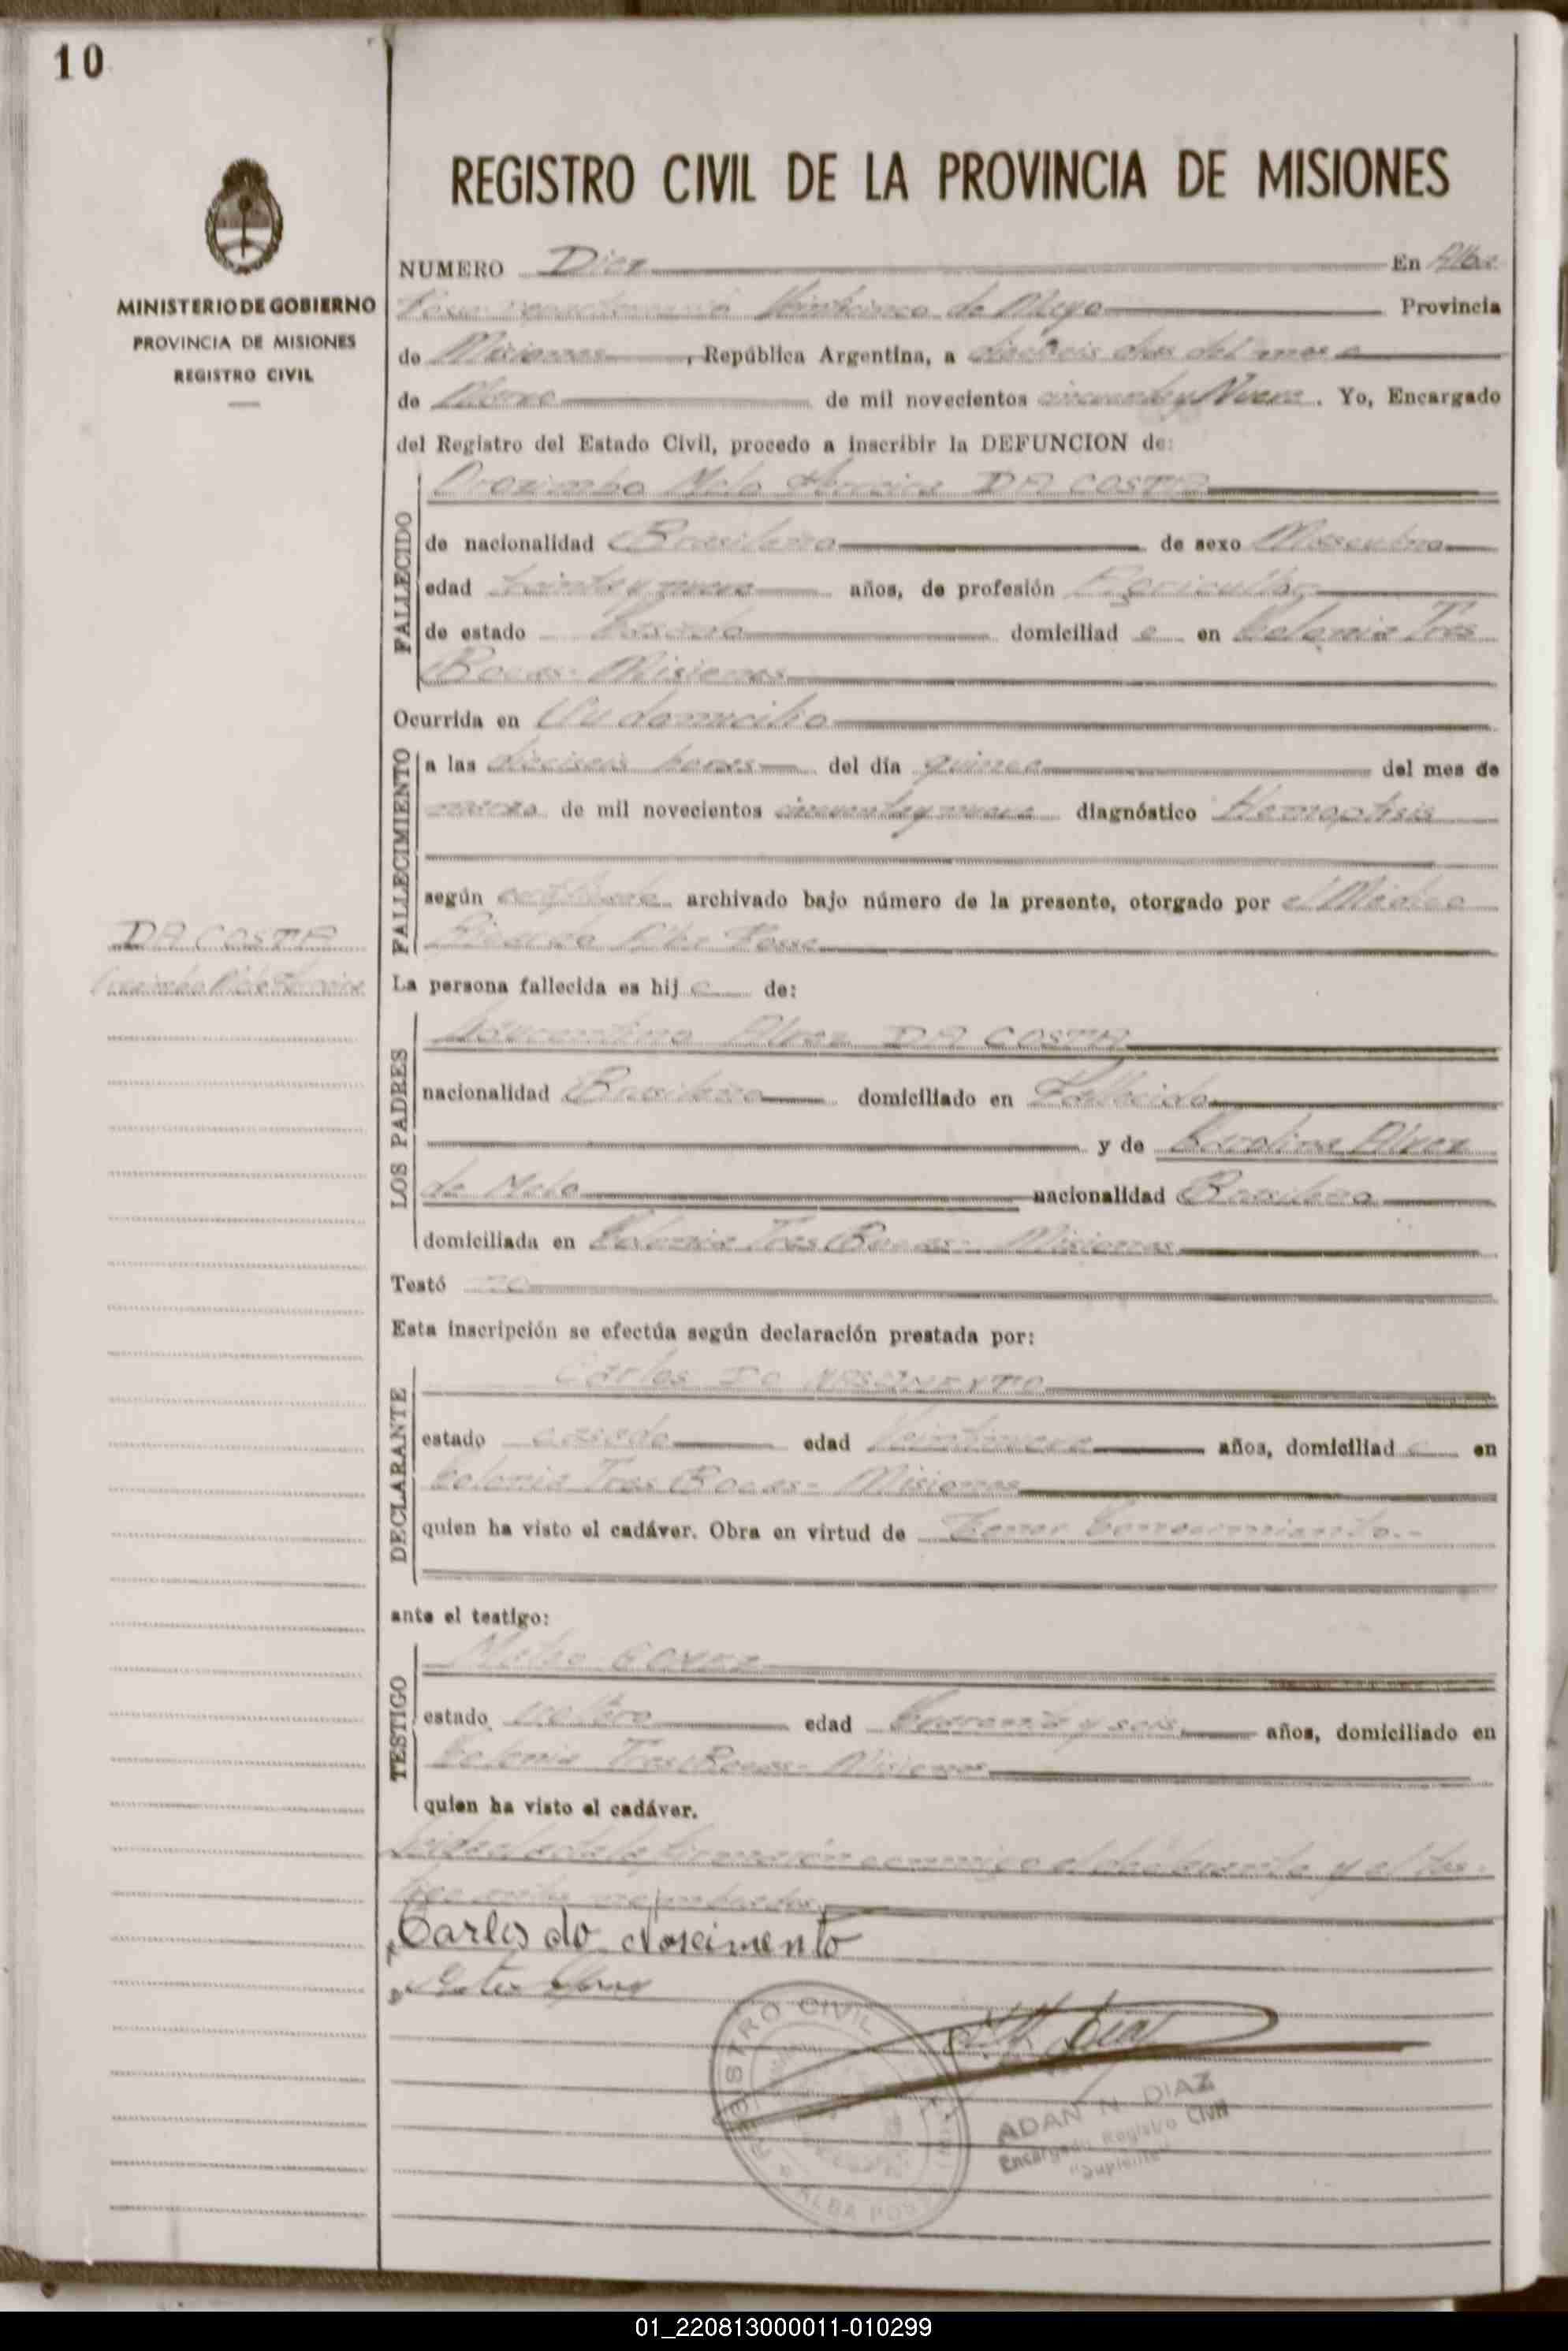 10
MINISTERIO DE GOBIERNO
PROVINCIA DE MISIONES
REGISTRO CIVIL
REGISTRO CIVIL DE LA PROVINCIA DE MISIONES
NUMERO Diez En Alba
Veinticinco de Mayo Provincia
de Misiones, República Argentina, a dieciseis dias del mes
de Marzo de mil novecientos cincuenta y Nueve. Yo, Encargado
del Registro del Estado Civil, procedo a inscribir la DEFUNCION de:
Orozimbo Melo Ferreira DA COSTA
FALLECIDO
de nacionalidad Brasilera de sexo Masculino
edad treinta y nueve años, de profesión Agricultor
de estado domiciliad o en Colonia Tres
Bocas - Misiones
Ocurrida en Su domicilio
FALLECIMIENTO
a las dieciseis horas del día quince del mes de
marzo de mil novecientos cincuenta y nueve diagnóstico Hemoptisis
según certificado archivado bajo número de la presente, otorgado por el Médico
Ricardo
DA COSTA
Orozimbo Melo Ferreira
La persona fallecida es hij o de:
LOS PADRES
Alvez DA COSTA
nacionalidad Brasilera domiciliado en Fallecido
y de Carolina Alvez
de Melo nacionalidad Brasilera
domiciliada en Colonia Tres Bocas - Misiones
Testó no
Esta inscripción se efectúa según declaración prestada por:
DECLARANTE
Carlos DO NASCIMENTO
estado casado edad Veintinueve años, domiciliad o en
Colonia Tres Bocas - Misiones
quien ha visto el cadáver. Obra en virtud de tener
ante el testigo:
TESTIGO
estado soltero edad Cuarenta y seis años, domiciliado en
Colonia Tres Bocas - Misiones
quien ha visto el cadáver.
Leida el acta la firmaron conmigo el declarante y el tes-
tigo
Carlos do Nascimento
REGISTRO CIVIL
ALBA POSSE
ADAN N DIAZ
Encargado Registro Civil
"Suplente"
01_220813000011-010299